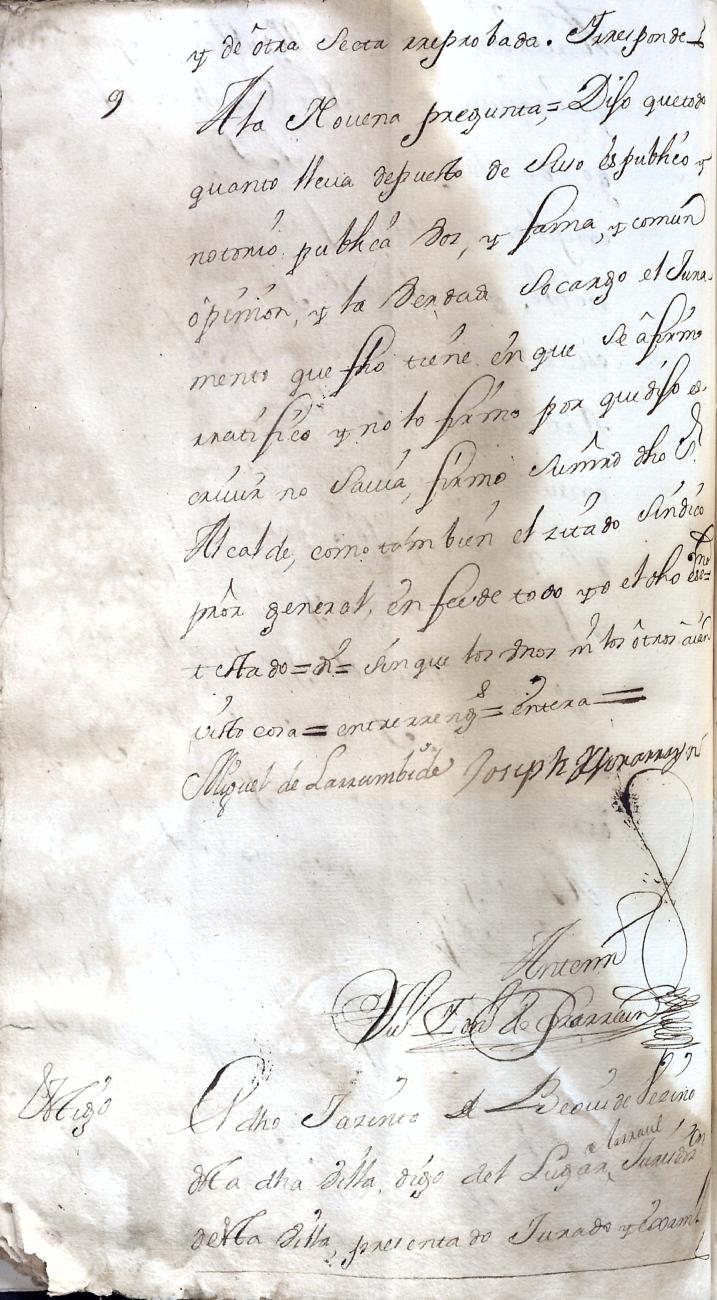 y de otra Secta rreprobada. Irresponde
9
A la Novena pregunta = Dijo que todo
quanto lleva depuesto de Suso es publico y
notorio publica Voz, y fama, y comun
opinion, y la Verdad Socargo el Jura-
mento que fho tiene en que Se afirmo
rratifico y no lo firmo por que dijo es-
crivir no Savia, firmo Sumrd dho Sr.
Alcalde, como tambien el zitado Sindico
pror general, en fee de todo yo el dho esno=
testado = = sin que los unos ni los otros aian
visto cosa = entrerrengs = entera =
Miguel de Larrumbide Joseph
Antemi
de
Ttigo
El dho Jazinto de vezino
de la dha Villa, digo del Lugar de Larraul, Jurisdon
de esta Villa, presentado Jurado y Exam